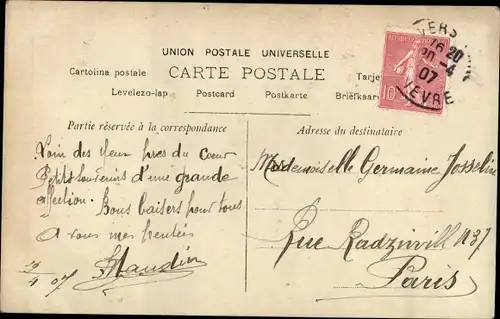 UNION POSTALE UNIVERSELLE
Cartolina postale CARTE POSTALE Tarje
Levelezo-lap Postcard Postkarte Briefkaar
Partie réservée à la correspondance
Loin des yeux pres du Coeur
Petits souvenirs d'une grande
affection. Bons baisers pour tous
a vous mes
14/4 07
Adresse du destinataire
Mademoiselle Germaine Josseline
Rue Radzivill N 37
Paris
10
16 20
20 - 4
07
SEVRE